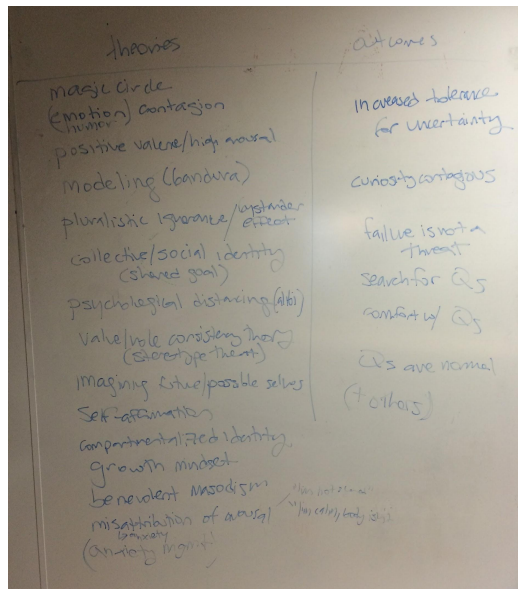 theories
magic circle
(emotion) contagion
humor
positive valence/high arousal
modeling (bandura)
pluralistic ignorance/bystander effect
collective/social identity
(shared goal)
psychological distancing (alibi)
value/role consistency theory
(stereotype threat)
imagining future/possible selves
self-affirmation
compartmentalized identity
growth mindset
benevolent masochism
misattribution of arousal
(anxiety mgmt)
outcomes
increased tolerance
for uncertainty
curiosity contagious
failure is not a
threat
search for Qs
comfort w/ Qs
Qs are normal
(+ others)